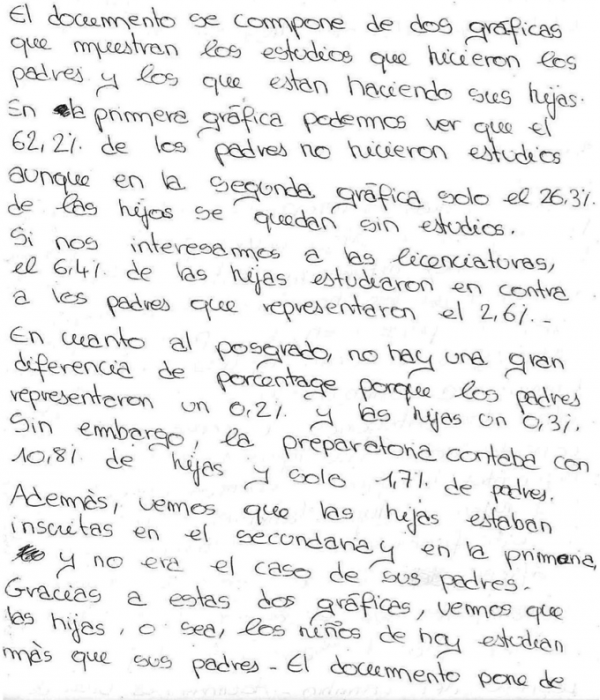 El documento se compone de dos gráficas
que muestran los estudios que hicieron los
padres y los que estan haciendo sus hijas.
En la primera gráfica podemos ver que el
62,2% de los padres no hicieron estudios
aunque en la segunda gráfica solo el 26,3%
de las hijas se quedan sin estudios.
Si nos interesamos a las licenciaturas,
el 6,4% de las hijas estudiaron en contra
a los padres que representaron el 2,6%.-
En cuanto al posgrado, no hay una gran
diferencia de porcentage porque los padres
representeron un 0,2% y las hijas un 0,3%.
Sin embargo, la preparatoria contaba con
10,8% de hijas y solo 1,7% de padres.
Además, vemos que las hijas estaban
inscritas en el secundaria y en la primaria,
y no era el caso de sus padres.
Gracias a estas dos gráficas, vemos que
las hijas, o sea, los niños de hoy estudian
màs que sus padres - El documento pone de